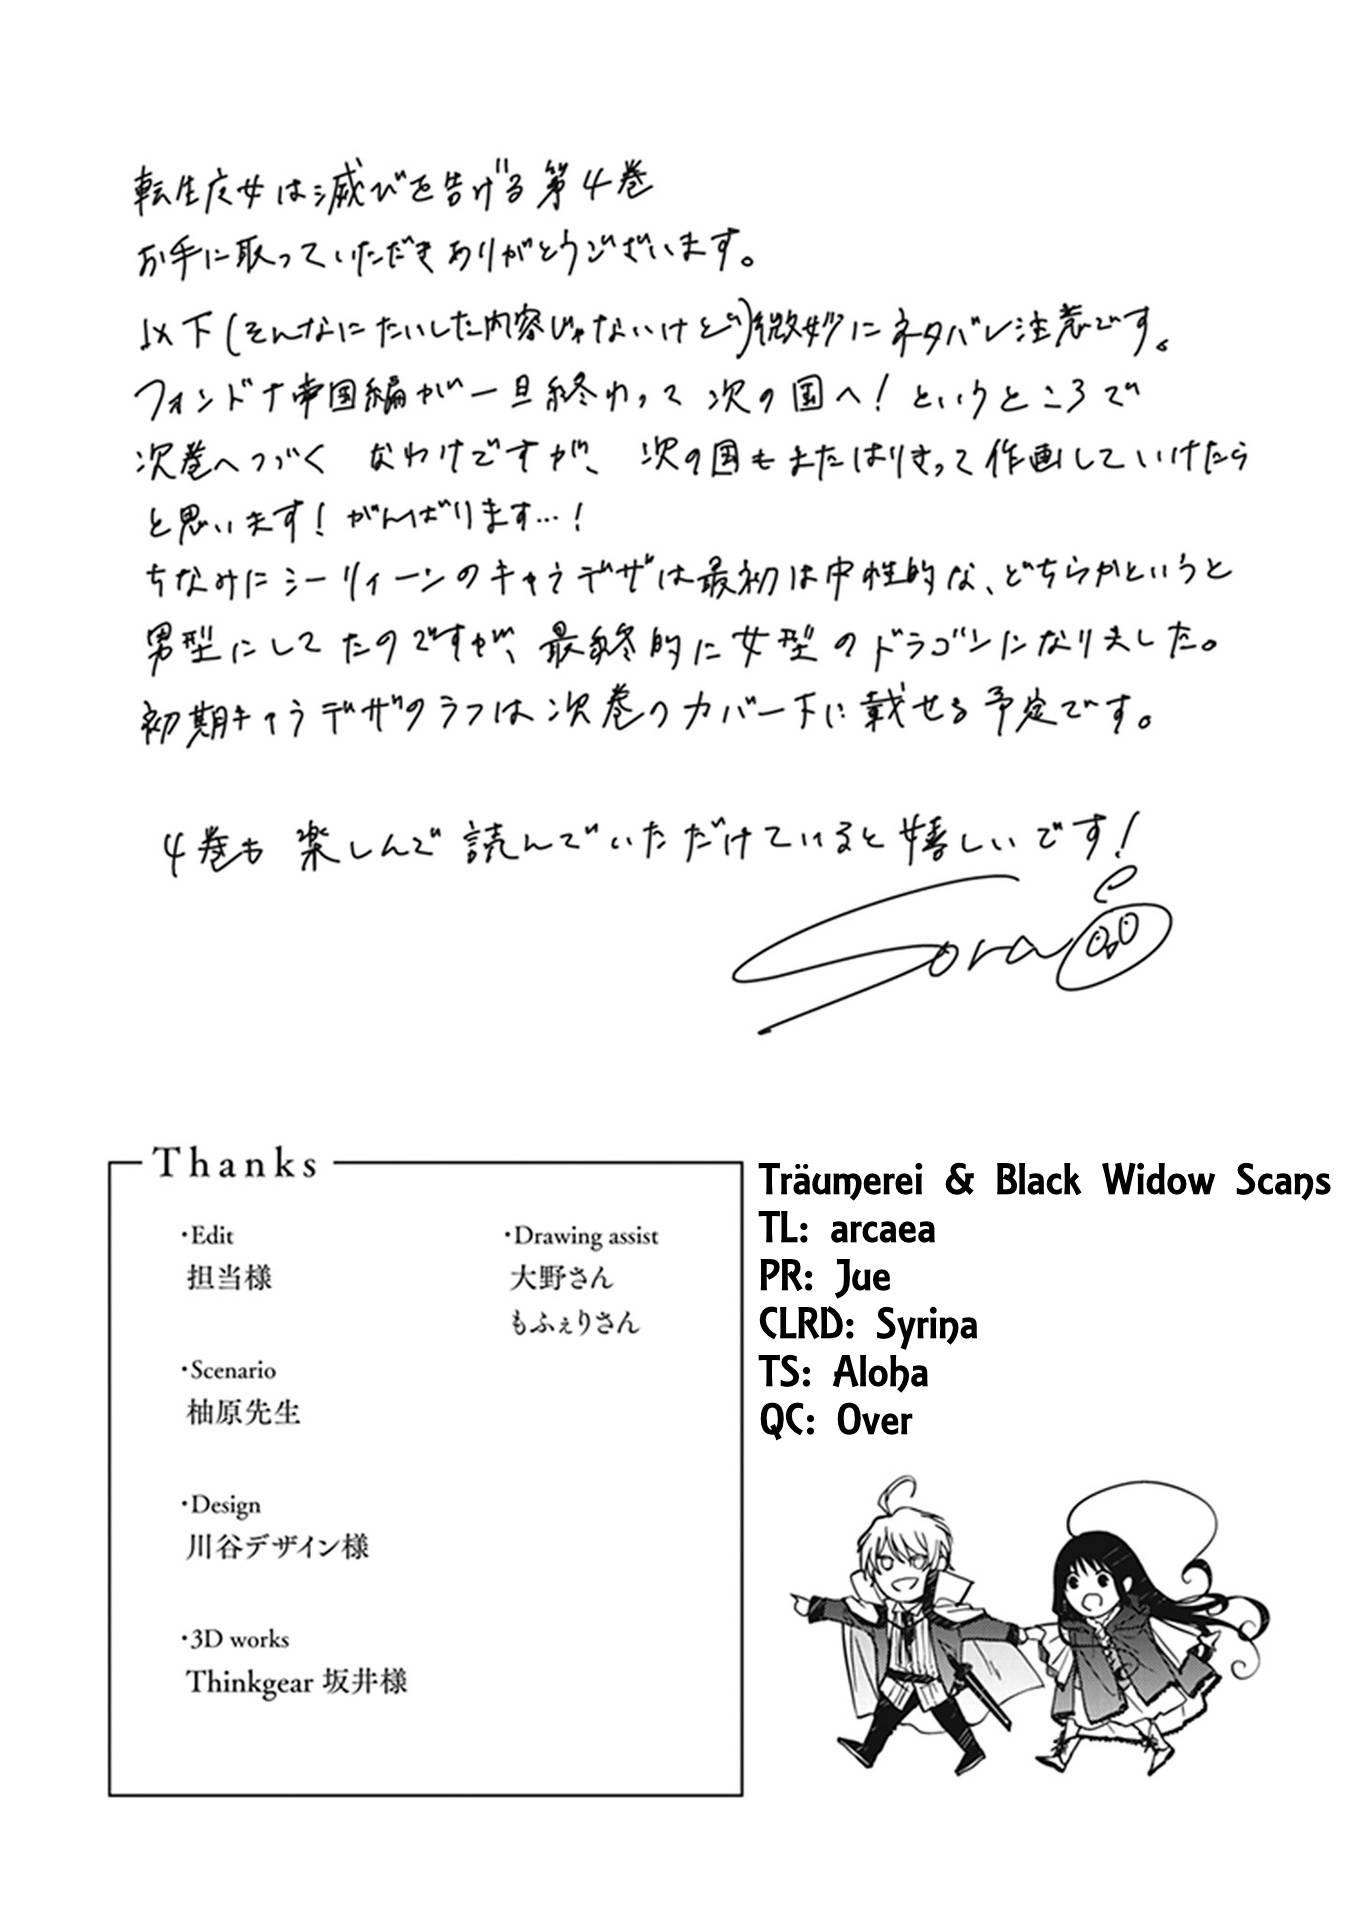 転生皮女は滅びを告げる第4巻
お手に取っていただきありがとうございます。
以下(そんなにたいした内容じゃないけど)微妙にネタバレ注意です。
フォンドナ帝国編が一旦終わって次の国へ!というところで
次巻へつづく なわけですが、次の国もまたはりきって作画していけたら
と思います!がんばります…!
ちなみにシーリィーンのキャラデザは最初は中性的な、どちらかというと
男型にしてたのですが、最終的に女型のドラゴンになりました。
初期キャラデザのラフは次巻のカバー下に載せる予定です。
4巻も楽しんで読んでいただけていると嬉しいです!
Sora
Thanks
・Edit
担当様
・Scenario
柚原先生
・Design
川谷デザイン様
・3D works
Thinkgear 坂井様
・Drawing assist
大野さん
もふぇりさん
Träumerei & Black Widow Scans
TL: arcaea
PR: Jue
CLRD: Syrina
TS: Aloha
QC: Over